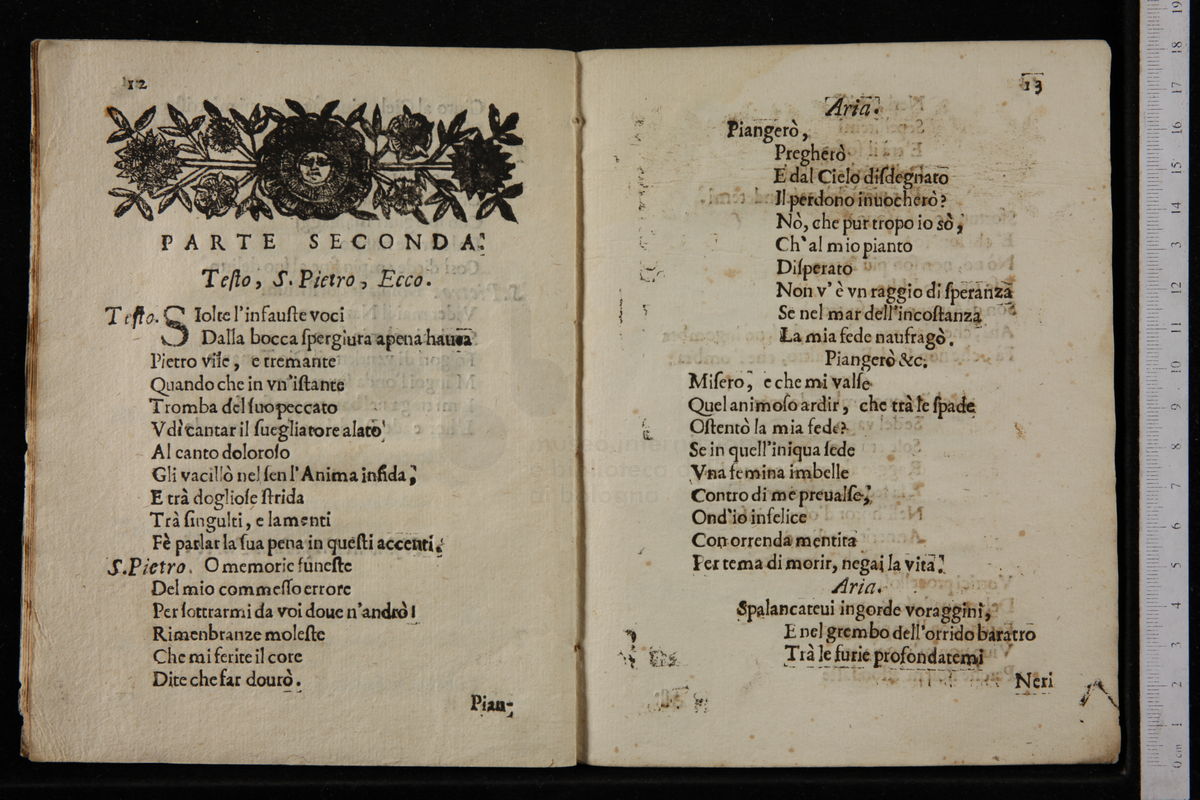 12
PARTE SECONDA.
Teſto, S. Pietro, Ecco.
Teſto. SIolte l'infauſte voci
Dalla bocca ſpergiura apena hauea
Pietro vile, e tremante
Quando che in vn'iſtante
Tromba del ſuo peccato
Vdì cantar il ſuegliatore alato
Al canto doloroſo
Gli vacillò nel ſen l'Anima infida;
E trà doglioſe ſtrida
Trà ſingulti, e lamenti
Fè parlar la ſua pena in queſti accenti.
S. Pietro. O memorie funeſte
Del mio commeſſo errore
Per ſottrarmi da voi doue n'andrò!
Rimenbranze moleſte
Che mi ferite il core
Dite che far dourò.
Pian-
13
Aria.
Piangerò,
Pregherò
E dal Cielo diſdegnato
Il perdono inuocherò?
Nò, che pur tropo io sò,
Ch' al mio pianto
Diſperato
Non v' è vn raggio di ſperanza
Se nel mar dell'incoſtanza
La mia fede naufragò.
Piangerò &c.
Miſero, e che mi valſe
Quel animoſo ardir, che trà le ſpade
Oſtentò la mia fede?
Se in quell'iniqua ſede
Vna femina imbelle
Contro di me preualſe,
Ond'io infelice
Con orrenda mentita
Per tema di morir, negai la vita.
Aria.
Spalancateui ingorde voraggini,
E nel grembo dell'orrido baratro
Trà le furie profondatemi
Neri